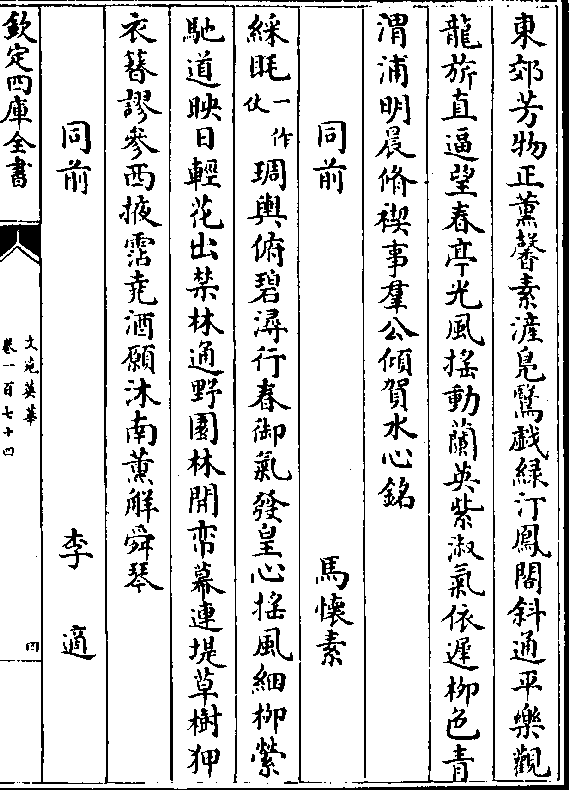 東郊芳物正薰馨素滻鳧鷖戲緑汀鳳閣斜通平樂觀
龍旂直逼望春亭光風搖動蘭英紫淑氣依遲柳色青
渭浦明晨脩禊事羣公傾賀水心銘
同前 馬懷素
綵眊一作仗琱輿俯碧潯行春御氣發皇心搖風細柳縈
馳道映日輕花出禁林通野園林開帟幕連堤草樹狎
衣簪謬參西掖霑堯酒願沐南薰解舜琴
同前 李適
欽定四庫全書
文苑英華
卷一百七十四
四